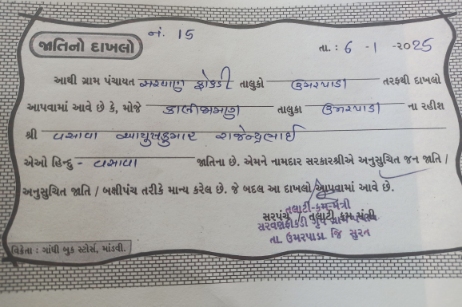 જાતિનો દાખલો
નં. 15
તા. : 6 - 1 - ૨૦25
આથી ગ્રામ પંચાયત સરવાણ ફોકડી તાલુકો ઉમરપાડા તરફથી દાખલો
આપવામાં આવે છે કે, મોજે કાલીજામણ તાલુકા ઉમરપાડા ના રહીશ
શ્રી વસાવા આયુષકુમાર રાજેન્દ્રભાઈ
એઓ હિન્દુ - વસાવા જાતિના છે. એમને નામદાર સરકારશ્રીએ અનુસુચિત જન જાતિ /
અનુસુચિત જાતિ / બક્ષીપંચ તરીકે માન્ય કરેલ છે. જે બદલ આ દાખલો આપવામાં આવે છે.
તલાટી-કમ-મંત્રી
સરપંચ / તલાટી કમ મંત્રી
સરવણફોકડી ગૃપ ગ્રામ
તા. ઉમરપાડા જિ સુરત
વિક્રેતા : ગાંધી બુક સ્ટોર્સ, માંડવી.